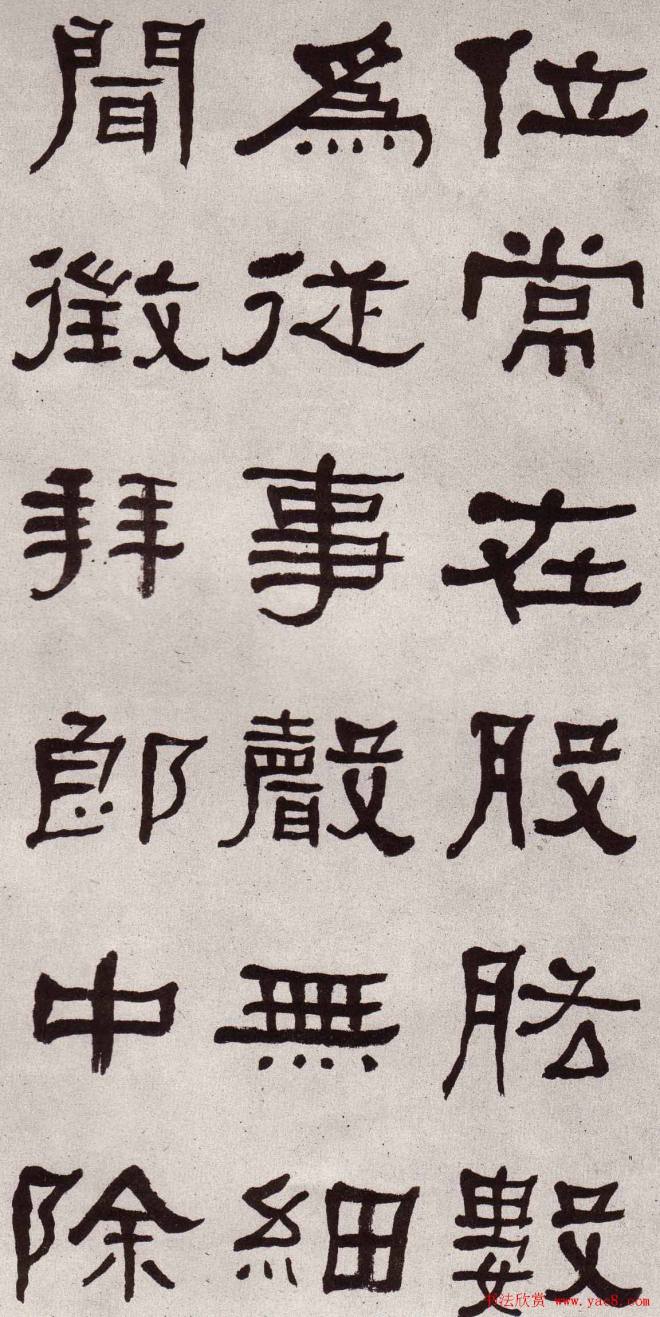 位常在股肱數
爲從事聲無細
聞徵拜郎中除
书法欣赏 www.yac8.com